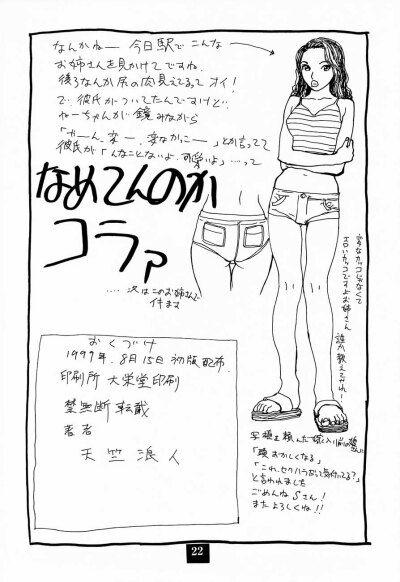 なんかねー 今日駅で こんな
お姉さんを見かけてですね
後ろなんか尻の肉見えてるって オイ！
で、彼氏がついてたんですけど、
ねーちゃんが 鏡みながら
「やーん、変ー、変なかっこー」とか言ってて
彼氏が「んなことないよ、可愛いよ」…って
なめてんのか
コラァ
....次はこのお姉さんで
行きます
変なカッコじゃなくて
エロいカッコですよお姉さん
誰か教えてやれー！
おくづけ
1999年、8月15日 初版配布
印刷所 大栄堂印刷
禁無断転載
著者
天竺浪人
写植を頼んだ
「頭おかしくなる」
「これ、セクハラだって気付いてる？」
と言われました
ごめんねSさん！
またよろしくね!!
22